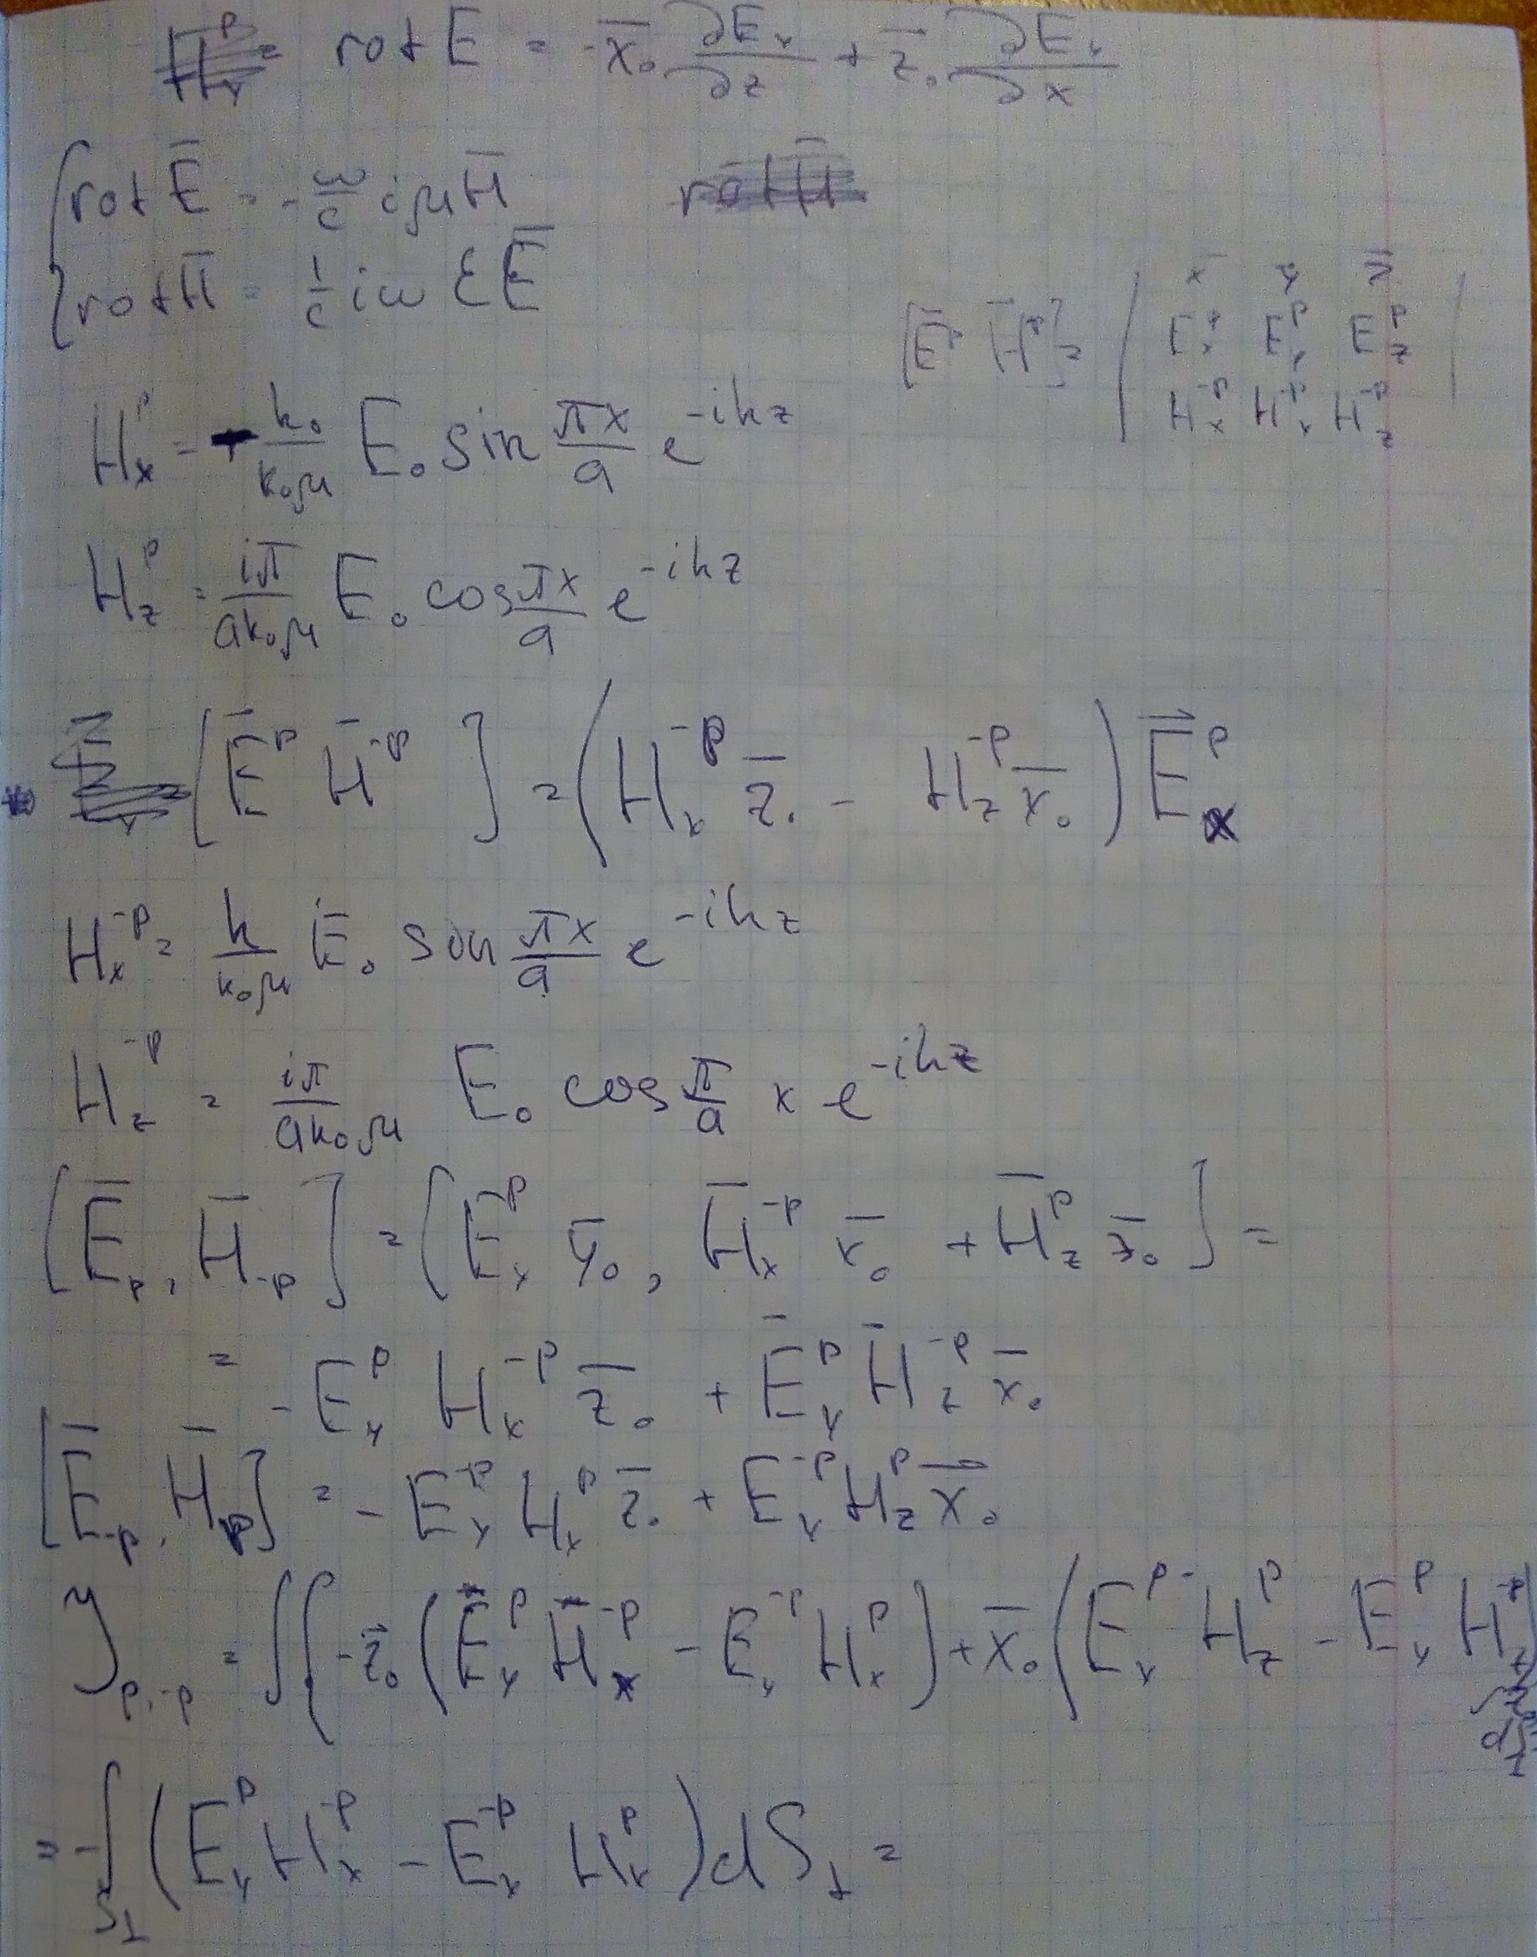 rot E = -x̄₀ ∂E_y/∂z + z̄₀ ∂E_y/∂x
{ rot Ē = -ω/c iμH̄
rot H̄ = 1/c iω εĒ
[Ē^p H̄^-p] = | x̄ ȳ z̄
E_x^p E_y^p E_z^p
H_x^-p H_y^-p H_z^-p |
H_x^p = - h₀/k₀μ E₀ sin πx/a e^-ihz
H_z^p = iπ/ak₀μ E₀ cos πx/a e^-ihz
[Ē^p H̄^-p] = (H_x^-p z̄₀ - H_z^-p x̄₀) E^p
H_x^-p = h/k₀μ E₀ sin πx/a e^-ihz
H_z^-p = iπ/ak₀μ E₀ cos π/a x e^-ihz
[Ē_p, H̄_-p] = [E_y^p ȳ₀, H̄_x^-p x̄₀ + H̄_z^p z̄₀] =
= - E_y^p H_x^-p z̄₀ + Ē_y^p H̄_z^-p x̄₀
[Ē_-p, H̄_p] = - E_y^-p H_x^p z̄₀ + E_y^-p H_z^p x̄₀
𝒴_p,-p = ∫( -z̄₀ (E_y^p H_x^-p - E_y^-p H_x^p) + x̄₀ (E_y^p- H_z^p - E_y^p H_z^-p
= -∫_S⊥ (E_y^p H_x^-p - E_y^-p H_x^p) dS⊥ =